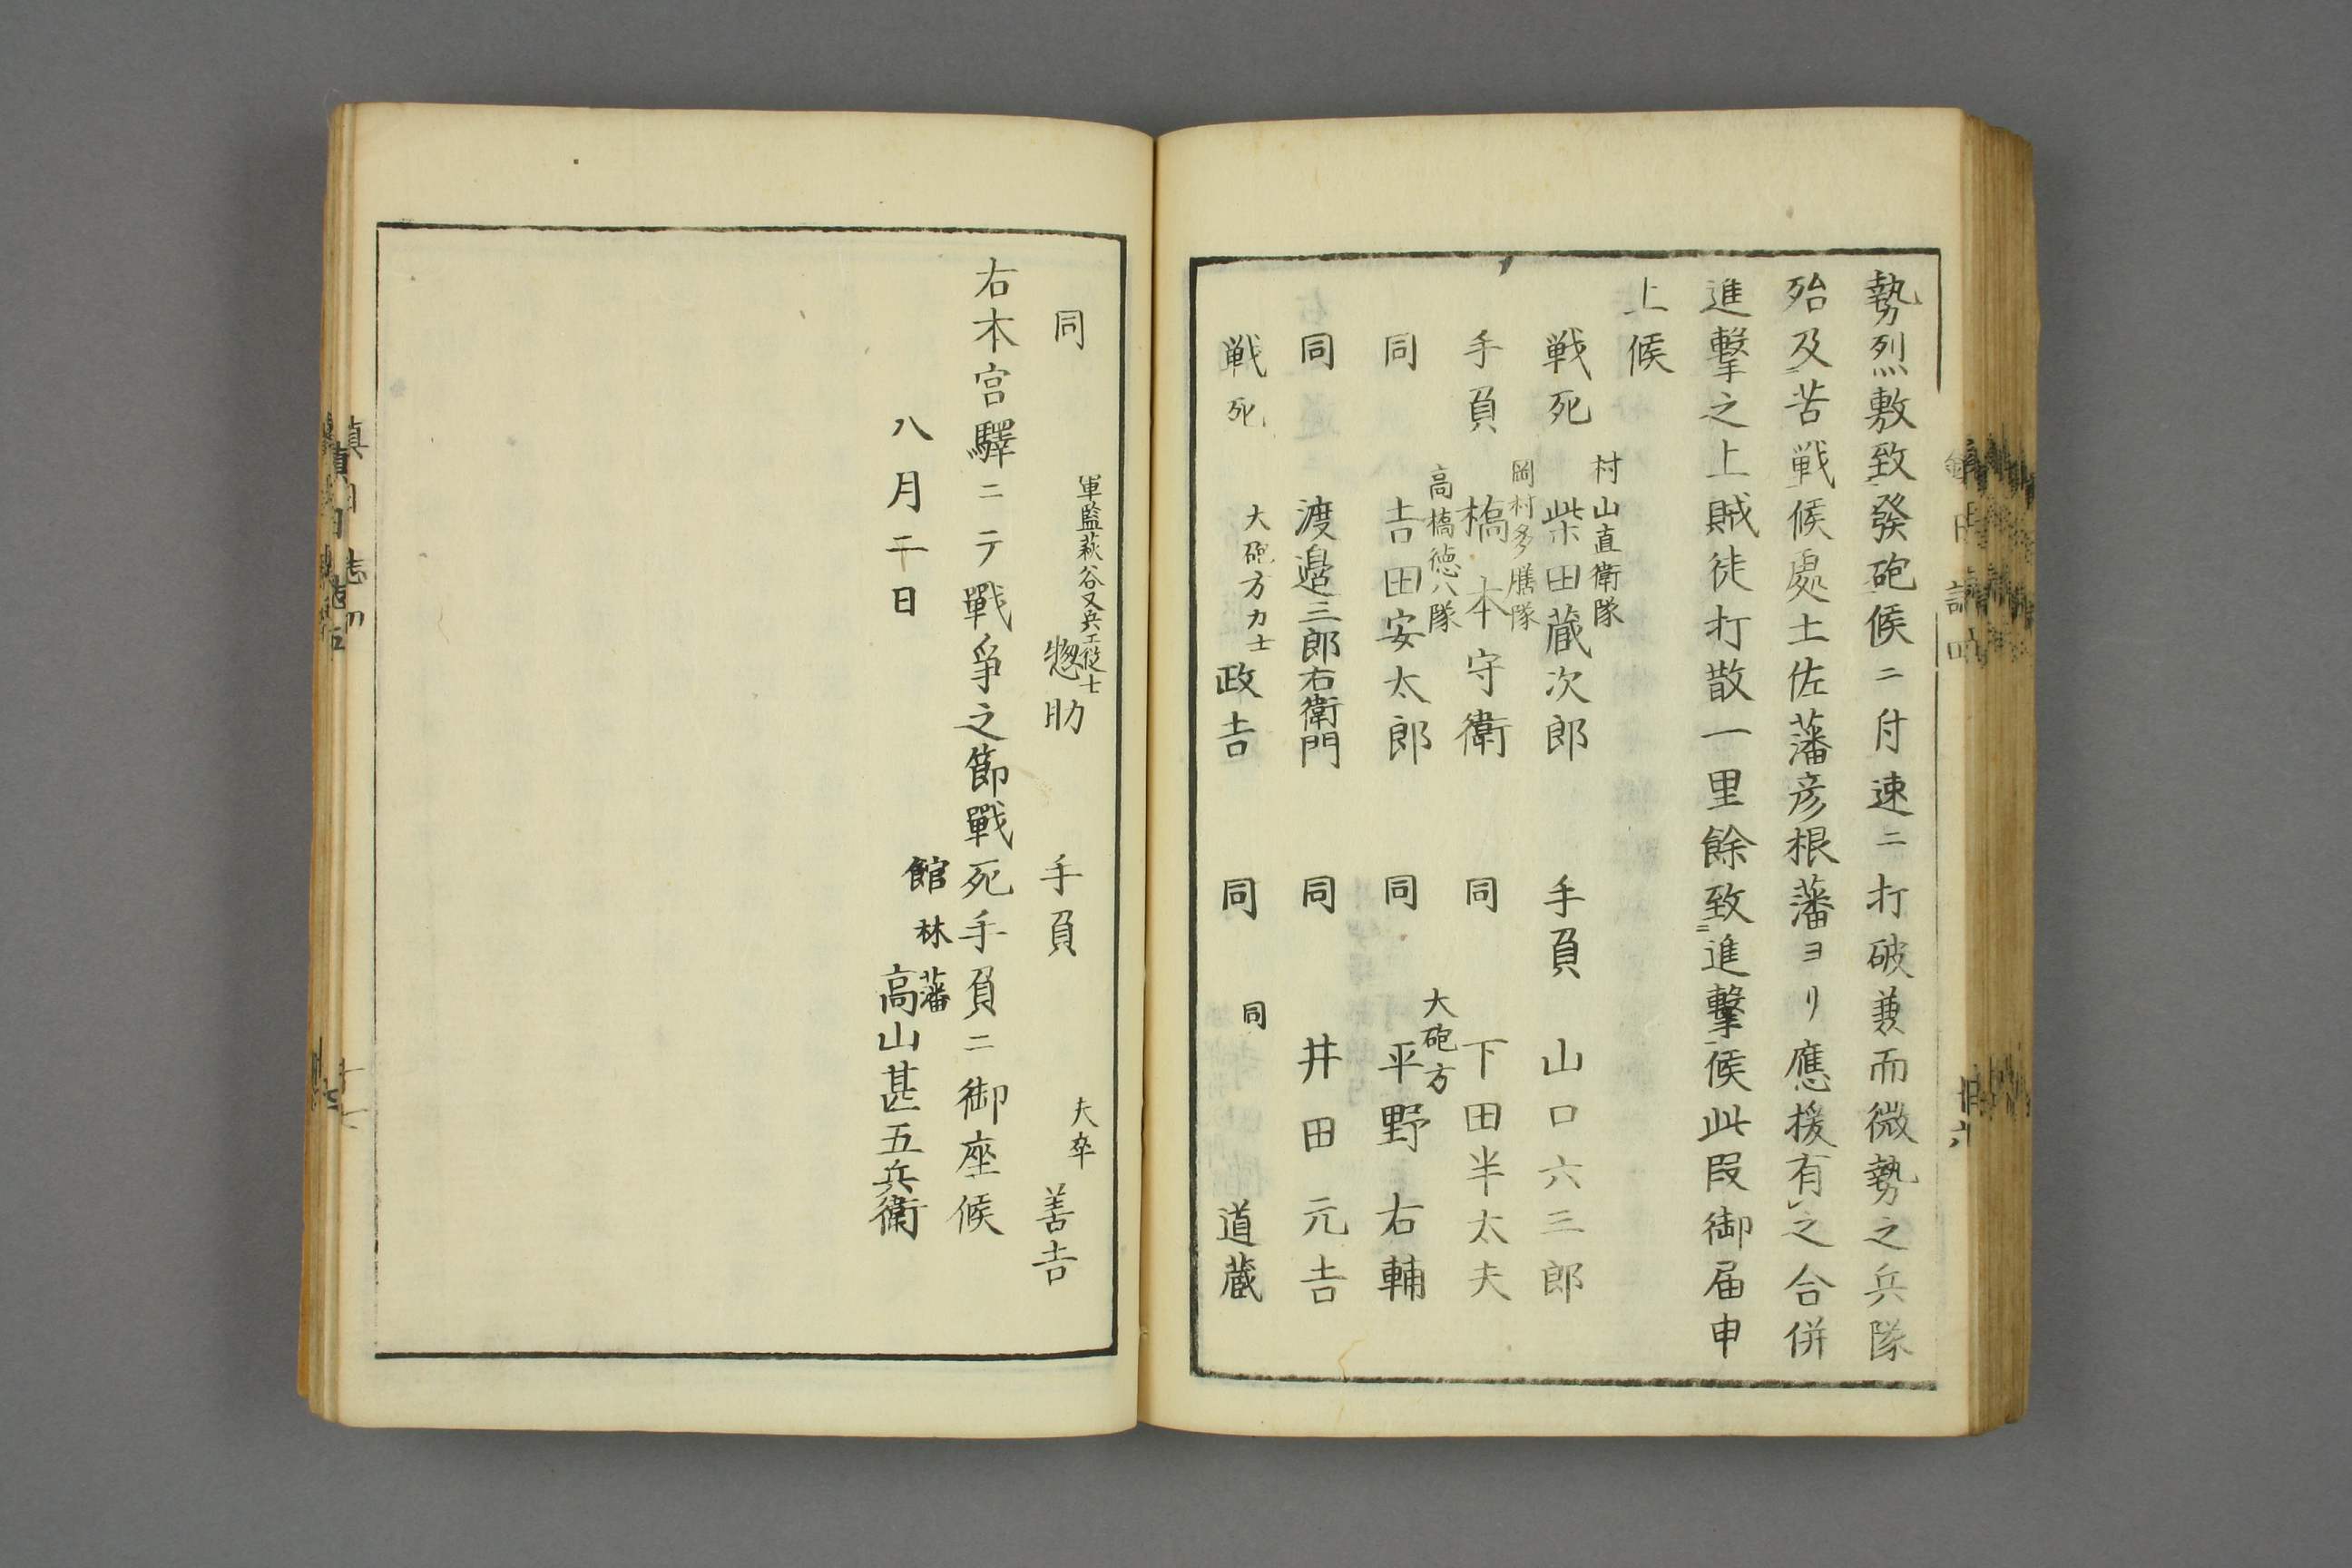 勢烈敷致發砲候ニ付速ニ打破兼而微勢之兵隊
殆及苦戦候處土佐藩彦根藩ヨリ應援有之合併
進撃之上賊徒打散一里餘致進撃候此段御届申
上候
村山直衛隊
戦死 柴田蔵次郎 手負 山口六三郎
岡村多膳隊
手負 橋本守衛 同 下田半太夫
高橋徳八隊 大砲方
同 吉田安太郎 同 平野右輔
同 渡邉三郎右衛門 同 井田元吉
大砲方力士 同
戦死 政吉 同 道蔵
軍監萩谷又兵エ従士 夫卒
同 惣助 手負 善吉
右本宮驛ニテ戰爭之節戰死手負ニ御座候
館林藩
八月二十日 高山甚五兵衛